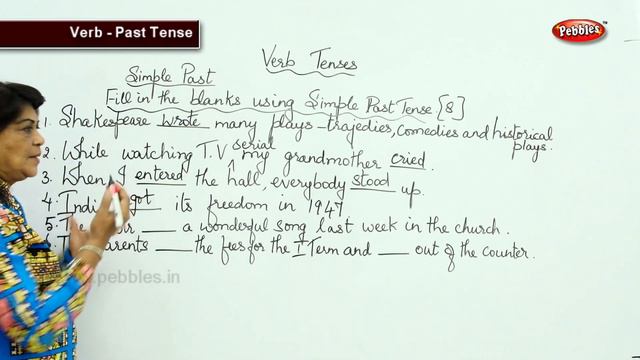 Verb - Past Tense
Pebbles
Verb Tenses
Simple Past
Fill in the blanks using Simple Past Tense [8]
1. Shakespeare wrote many plays - trajedies, comedies and historical plays.
2. While watching T.V serial my grandmother cried.
3. When I entered the hall, everybody stood up.
4. got its freedom in 1947
5. ___ a wonderful song last week in the church.
6. ___ the fees for the I Term and ___ out of the counter.
www.pebbles.in